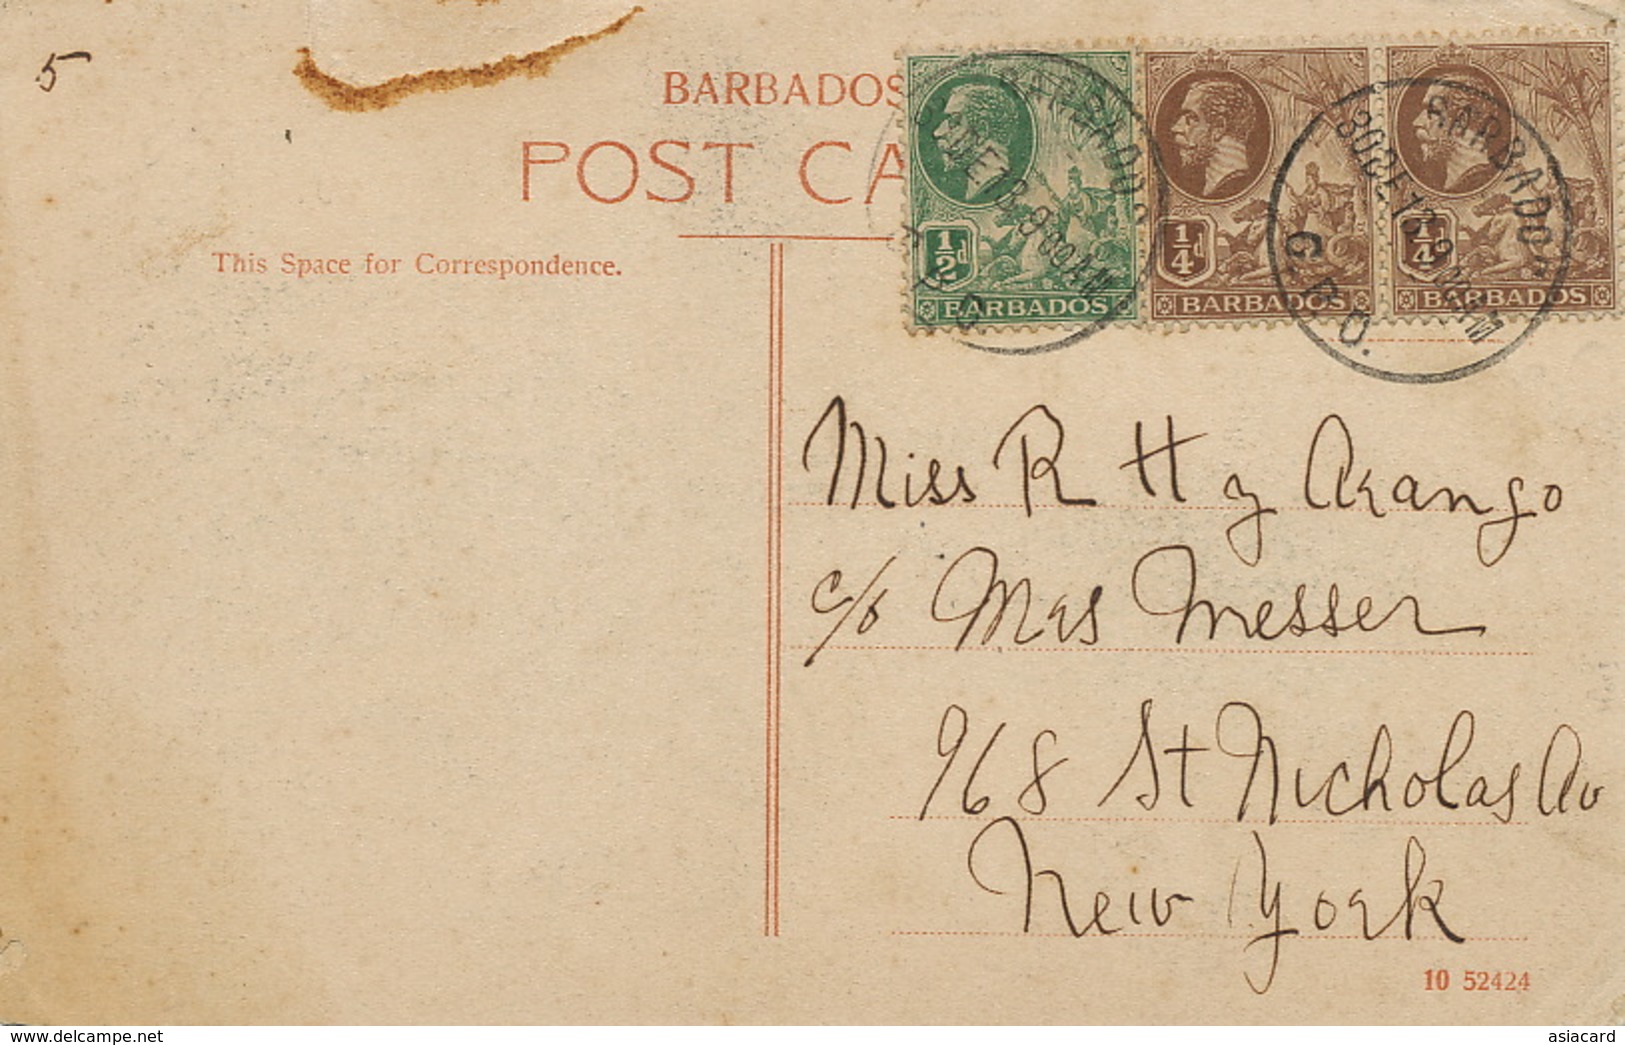 5
BARBADOS
POST CA
This Space for Correspondence.
BARBADOS
30 DE 13 9 00 AM
G.P.O.
½d
BARBADOS
¼d
BARBADOS
¼d
BARBADOS
BARBADOS
30 DE 13 9 00 AM
G.P.O.
Miss R H y Arango
c/o Mrs Messer
968 St Nicholas Av
New York
10 52424
www.delcampe.net
asiacard